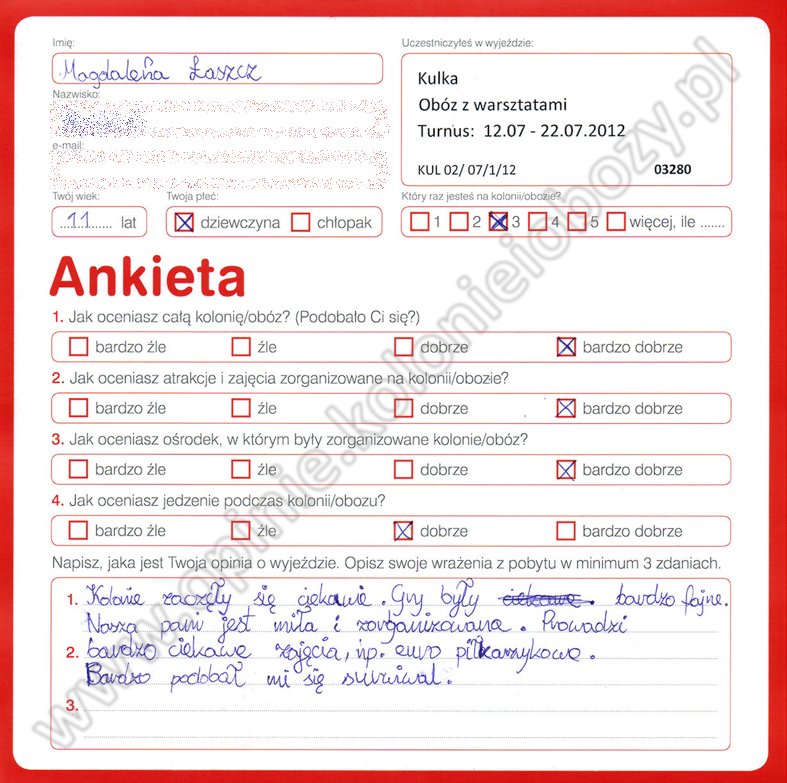 Imię:
Magdalena Łaszcz
Nazwisko:
e-mail:
Twój wiek:
11 lat
Twoja płeć:
dziewczyna chłopak
Uczestniczyłeś w wyjeździe:
Kulka
Obóz z warsztatami
Turnus: 12.07 - 22.07.2012
KUL 02/ 07/1/12 03280
Który raz jesteś na kolonii/obozie?
1 2 3 4 5 więcej, ile .......
Ankieta
1. Jak oceniasz całą kolonię/obóz? (Podobało Ci się?)
bardzo źle źle dobrze bardzo dobrze
2. Jak oceniasz atrakcje i zajęcia zorganizowane na kolonii/obozie?
bardzo źle źle dobrze bardzo dobrze
3. Jak oceniasz ośrodek, w którym były zorganizowane kolonie/obóz?
bardzo źle źle dobrze bardzo dobrze
4. Jak oceniasz jedzenie podczas kolonii/obozu?
bardzo źle źle dobrze bardzo dobrze
Napisz, jaka jest Twoja opinia o wyjeździe. Opisz swoje wrażenia z pobytu w minimum 3 zdaniach.
1. Kolonie zaczęły się ciekawie. Gry były ciekawe. bardzo fajne.
Nasza pani jest miła i zorganizowana. Prowadzi
2. bardzo ciekawe zajęcia, np. euro piłkarzykowe.
Bardzo podobał mi się surwiwal.
3.
www.opinie.kolonieiobozy.pl